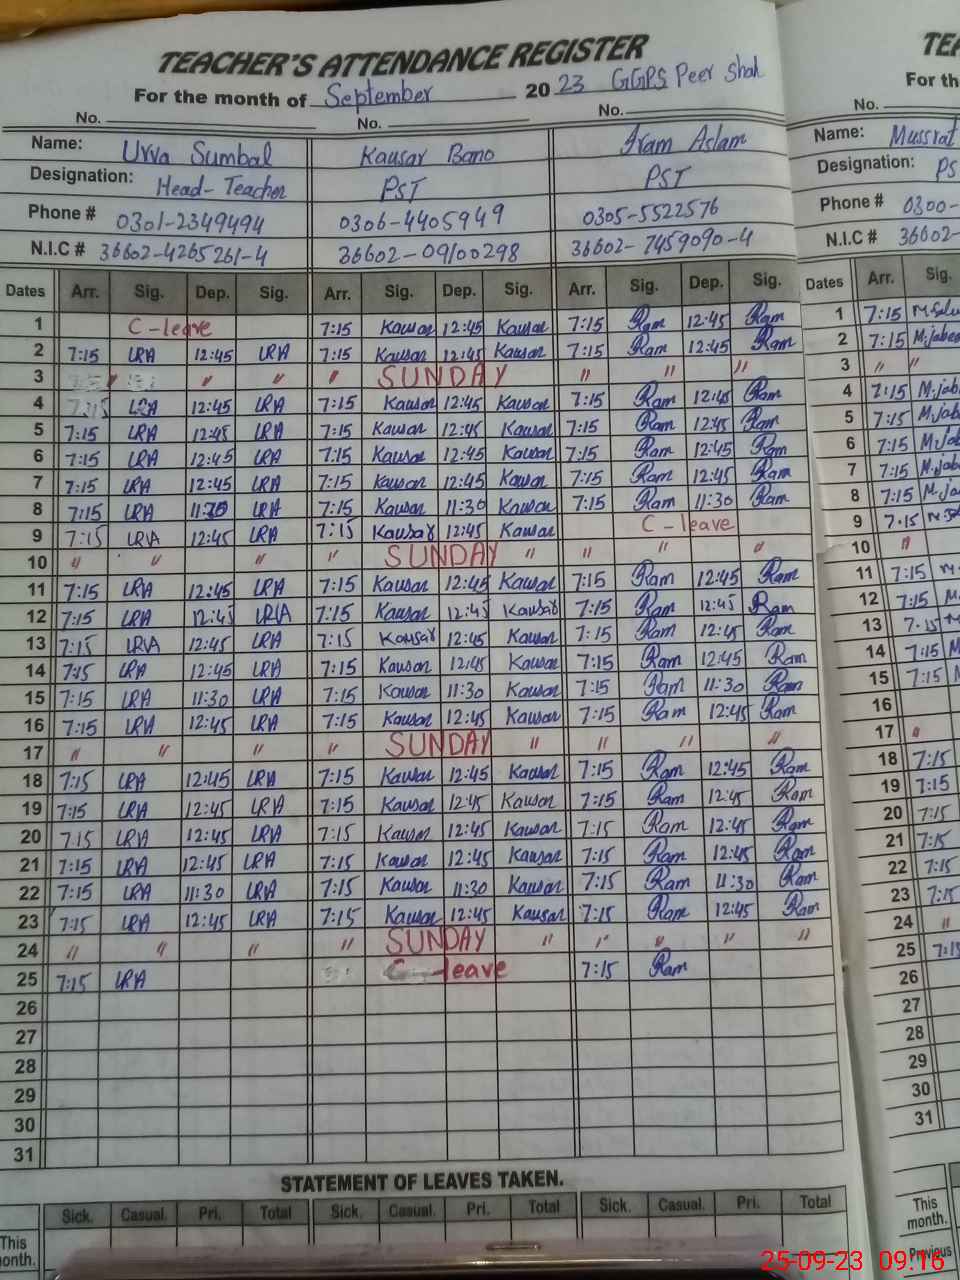 TEACHER'S ATTENDANCE REGISTER
For the month of September 2023 GGPS Peer Shah
No. No. No.
Name: Urva Sumbal Kausar Bano Iram Aslam
Designation: Head-Teacher PST PST
Phone # 0301-2349494 0306-4405949 0305-5522576
N.I.C # 36602-4265261-4 36602-09100298 36602-7459090-4
Dates Arr. Sig. Dep. Sig. Arr. Sig. Dep. Sig. Arr. Sig. Dep. Sig.
1 C-leave 7:15 Kausar 12:45 Kausar 7:15 Ram 12:45 Ram
2 7:15 URVA 12:45 URVA 7:15 Kausar 12:45 Kausar 7:15 Ram 12:45 Ram
3 " " " SUNDAY " " "
4 7:15 URVA 12:45 URVA 7:15 Kausar 12:45 Kausar 7:15 Ram 12:45 Ram
5 7:15 URVA 12:45 URVA 7:15 Kausar 12:45 Kausar 7:15 Ram 12:45 Ram
6 7:15 URVA 12:45 URVA 7:15 Kausar 12:45 Kausar 7:15 Ram 12:45 Ram
7 7:15 URVA 12:45 URVA 7:15 Kausar 12:45 Kausar 7:15 Ram 12:45 Ram
8 7:15 URVA 11:30 URVA 7:15 Kausar 11:30 Kausar 7:15 Ram 11:30 Ram
9 7:15 URVA 12:45 URVA 7:15 Kausar 12:45 Kausar C-leave
10 " " " " " SUNDAY " " " "
11 7:15 URVA 12:45 URVA 7:15 Kausar 12:45 Kausar 7:15 Ram 12:45 Ram
12 7:15 URVA 12:45 URVA 7:15 Kausar 12:45 Kausar 7:15 Ram 12:45 Ram
13 7:15 URVA 12:45 URVA 7:15 Kausar 12:45 Kausar 7:15 Ram 12:45 Ram
14 7:15 URVA 12:45 URVA 7:15 Kausar 12:45 Kausar 7:15 Ram 12:45 Ram
15 7:15 URVA 11:30 URVA 7:15 Kausar 11:30 Kausar 7:15 Ram 11:30 Ram
16 7:15 URVA 12:45 URVA 7:15 Kausar 12:45 Kausar 7:15 Ram 12:45 Ram
17 " " " " SUNDAY " " " "
18 7:15 URVA 12:45 URVA 7:15 Kausar 12:45 Kausar 7:15 Ram 12:45 Ram
19 7:15 URVA 12:45 URVA 7:15 Kausar 12:45 Kausar 7:15 Ram 12:45 Ram
20 7:15 URVA 12:45 URVA 7:15 Kausar 12:45 Kausar 7:15 Ram 12:45 Ram
21 7:15 URVA 12:45 URVA 7:15 Kausar 12:45 Kausar 7:15 Ram 12:45 Ram
22 7:15 URVA 11:30 URVA 7:15 Kausar 11:30 Kausar 7:15 Ram 11:30 Ram
23 7:15 URVA 12:45 URVA 7:15 Kausar 12:45 Kausar 7:15 Ram 12:45 Ram
24 " " " " SUNDAY " " " " "
25 7:15 URVA C-leave 7:15 Ram
26
27
28
29
30
31
STATEMENT OF LEAVES TAKEN.
Sick. Casual. Pri. Total Sick. Casual. Pri. Total Sick. Casual. Pri. Total
This month.
TEA
For th
No.
Name: Mussrat
Designation: PS
Phone # 0300-
N.I.C # 36602-
Dates Arr. Sig.
1 7:15
2 7:15 M.jabee
3 " "
4 7:15 M.jab
5 7:15 M.jab
6 7:15 M.jab
7 7:15 M.jab
8 7:15 M.ja
9 7:15
10 "
11 7:15 M.
12 7:15 M.
13 7:15
14 7:15 M
15 7:15 M
16
17 "
18 7:15
19 7:15
20 7:15
21 7:15
22 7:15
23 7:15
24 "
25 7:15
26
27
28
29
30
31
This month.
Previous
25-09-23 09:16